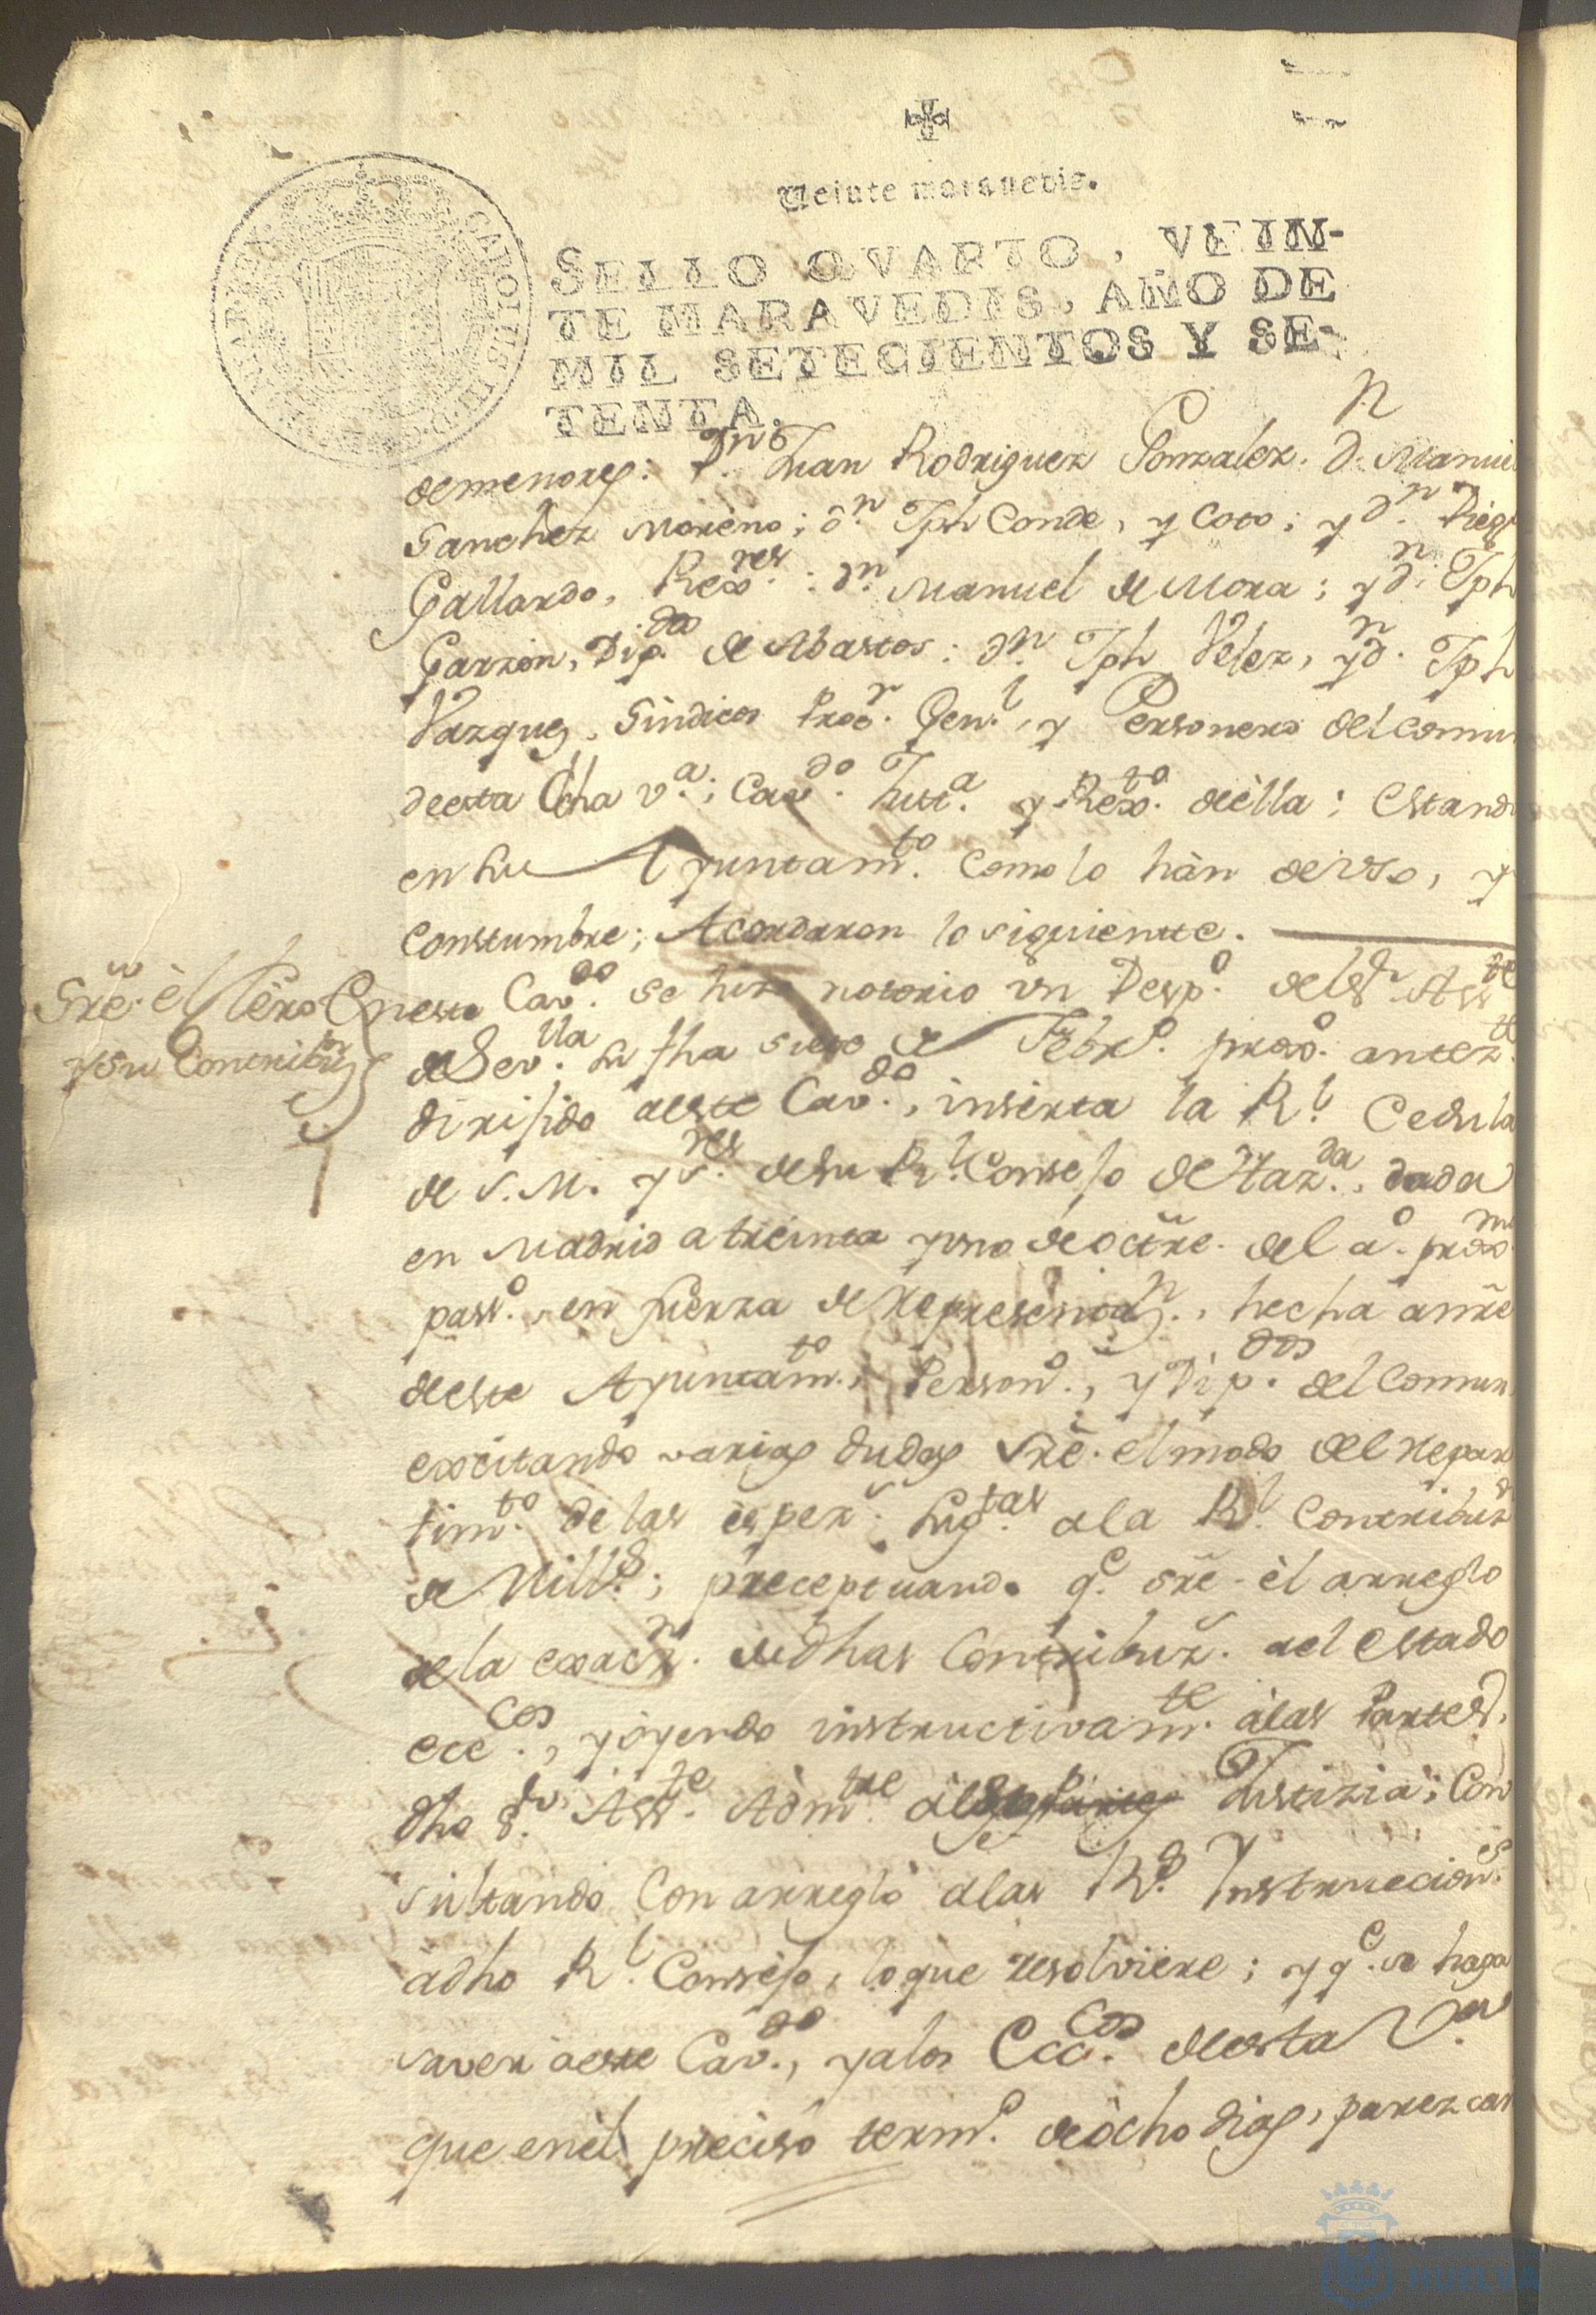 Veinte maravedis.
SELLO QVARTO, VEIN-
TE MARAVEDIS, AÑO DE
MIL SETECIENTOS Y SE-
TENTA.
CAROLUS III D.G.
de menores: Dn. Juan Rodriguez Gonzalez. Dn. Manuel
Sanchez Moreno; dn. Jph Conde, y Coto; y dn. Diego
Gallardo, Rexres.: dn. Manuel de Mora; y dn. Jph
Garzon, Dipdos. de Abastos: dn. Jph Velez, y dn. Jph
Vazques, Sindicos Procr. Genl., y Personero del Comun
de esta dcha va.; Cavdo. Justa. y Rexto. de ella; Estando
en su Ayuntamto. como lo hàn de uso, y
constumbre; Acordaron lo siguiente.
Sre. èl
y su Contribuz
En este Cavdo. se hizo notorio un Despo. del Sr. Asste
de Sevlla. su fha siete de Febro. proxo. antezte.
dirijido a este Cavdo., inserta la Rl. Cedula
de S.M. y Sres. de su Rl. Consejo de Hazda., dada
en Madrid a treinta y uno de octre. del ao. proxmo
passo. en fuerza de representazn., hecha a nre
de este Ayuntamto., Persono., y Dipdos. del Comun
excitando varias dudas sre. el modo del repar
timto. de las espezs. sugtas. a la Rl. Contribuzn
de Mills.; preceptuando qe. sre. èl arreglo
de la exaczn. de dhas Contribuz. del estado
ecccos., y oyendo instructivamte. à las Partes,
dho Sr. Asste. Admtre Justizia; Con
sultando Con arreglo a las Rs. Instruccions.
à dho Rl. Consejo, lo que resolviere; y qe. se haga
saver à este Cavdo., y a los Ecccos. de esta Va.
que en èl preciso termo. de ocho dias, parezcan
HUELVA